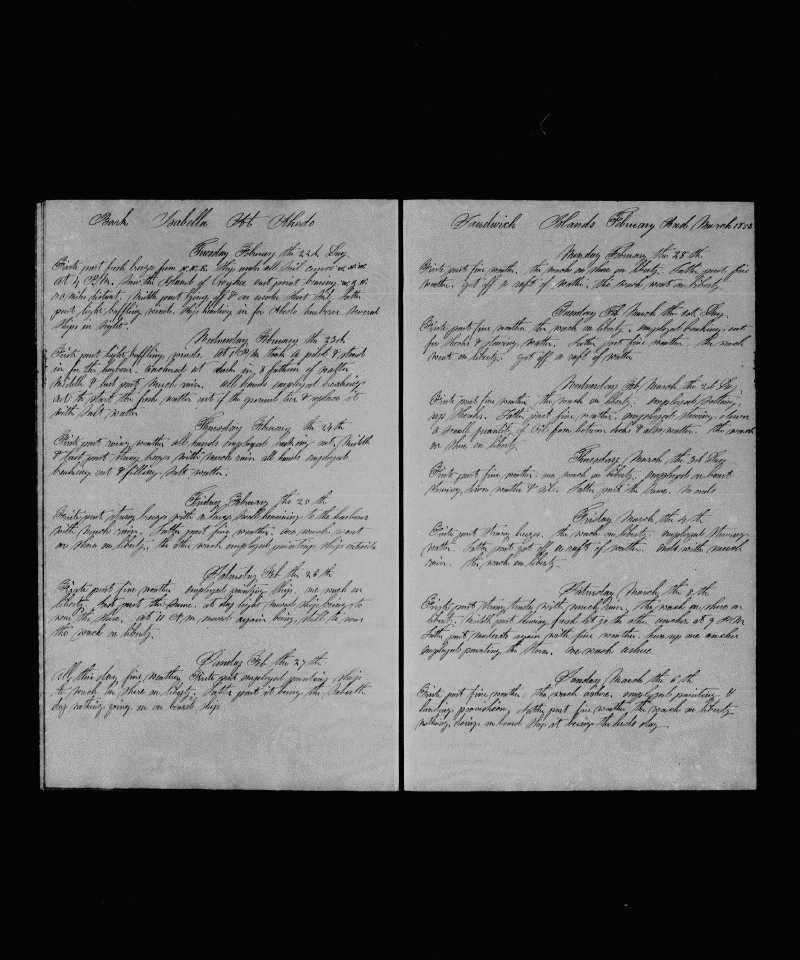 Bark Isabella At Ohedo
Tuesday February the 22d Day
Firste part fresh breeze from N.N.E. Ship under all sail
at 4 P.M. saw the Island of east point bearing
20 miles distant. Middle part lying off & on under short sail. Latter
part light baffling winds. Ship heading in for Ohedo harbour several
ships in sight.
Wednesday February the 23d
Firste part light baffling winds. at 1 P.M. took a pilot & stood
in for the harbour. anchored at in 8 fathom of watter
Middle & last part much rain. all hands employed breaking
out to start the fresh watter out of the ground tier & replace it
with salt watter
Thursday February the 24th
Firste part rainy weather all hands employed breaking out. Middle
& last part strong breeze with much rain all hands employed
breaking out & filling salt watter.
Friday February the 25th
Firste part strong breeze with a large swell running to the harbour
with much rain. Latter part fine weather. one watch went
on shore on liberty. the other watch employed painting ship outside
Saturday Feb the 26th
Firste part fine weather employed painting ship. one watch on
liberty. Last part the same. at day light moved ship being to
near the shore. at 11 A.M. moved again being still to near
the watch on liberty.
Sunday Feb the 27th
All this day fine weather, Firste part employed painting ship
the watch on shore on liberty. Latter part it being the Sabbath
day nothing going on on board ship
Sandwich Islands February And March 1853
Monday February the 28th
Firste part fine weather. the watch on shore on liberty. Latter part fine
weather. got off a raft of watter. the watch went on liberty
Tuesday March the 1st Day
Firste part fine weather the watch on liberty. employed breaking out
for shooks & stowing watter. Latter part fine weather. the watch
went on liberty. got off a raft of watter
Wednesday Feb March the 2d Day
Firste part fine weather the watch on liberty. employed setting
up shooks. Latter part fine weather. employed stowing down
a small quantity of oil from between decks & also watter. the watch
on shore on liberty
Thursday March the 3d Day
Firste part fine weather. one watch on liberty. employed on board
stowing down watter & oil. Latter part the same. So ends
Friday March the 4th
Firste part strong breeze. the watch on liberty. employed stowing
watter. Latter part got off a raft of watter. Ends with much
rain. the watch on liberty
Saturday March the 5th
Firste part strong trades, with much rain, the watch on shore on
liberty. Middle part blowing fresh let go the other anchor at 9 P.M.
Latter part moderate again with fine weather. hove up one anchor
employed painting the Stern. One watch ashore
Sunday March the 6th
Firste part fine weather. the watch ashore. employed painting &
landing provisions, Latter part fine weather, the watch on liberty
nothing doing on board ship it being the lords day